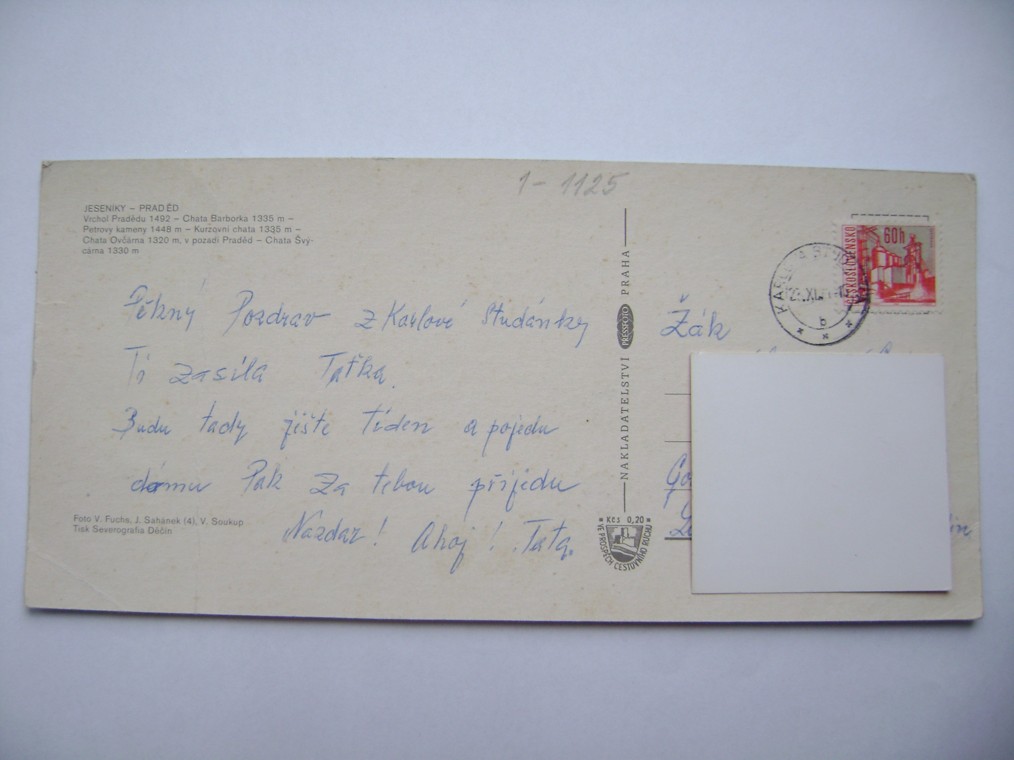 1-1125
JESENÍKY – PRADĚD
Vrchol Pradědu 1492 – Chata Barborka 1335 m –
Petrovy kameny 1448 m – Kurzovní chata 1335 m –
Chata Ovčárna 1320 m, v pozadí Praděd – Chata Švý-
cárna 1330 m
Pěkný Pozdrav z Karlové Studánky
Ti zasílá Taťka.
Budu tady jěště tíden a pojedu
domu Pak za tebou přijedu
Nazdar! Ahoj! Tata.
Foto V. Fuchs, J. Sahánek (4), V. Soukup
Tisk Severografia Děčín
NAKLADATELSTVÍ PRESSFOTO PRAHA
Kčs 0,20
VE PROSPĚCH CESTOVNÍHO RUCHU
60h
ČESKOSLOVENSKO
b
Žák